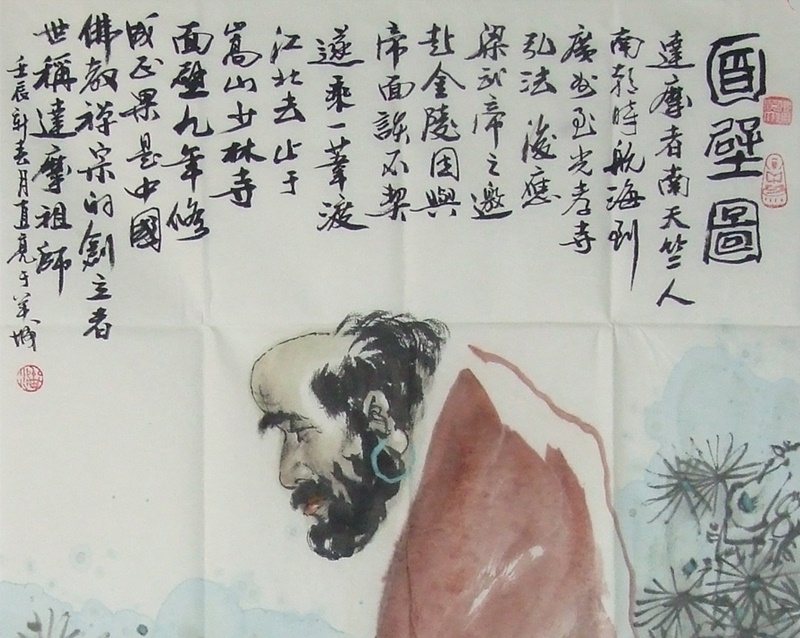 面壁圖
達摩者南天竺人
南朝時航海到
廣州至光孝寺
弘法後應
梁武帝之邀
赴金陵因與
帝面談不契
遂乘一葦渡
江北去止于
嵩山少林寺
面壁九年修
成正果是中國
佛教禪宗的創立者
世稱達摩祖師
壬辰新春月直亮于羊城